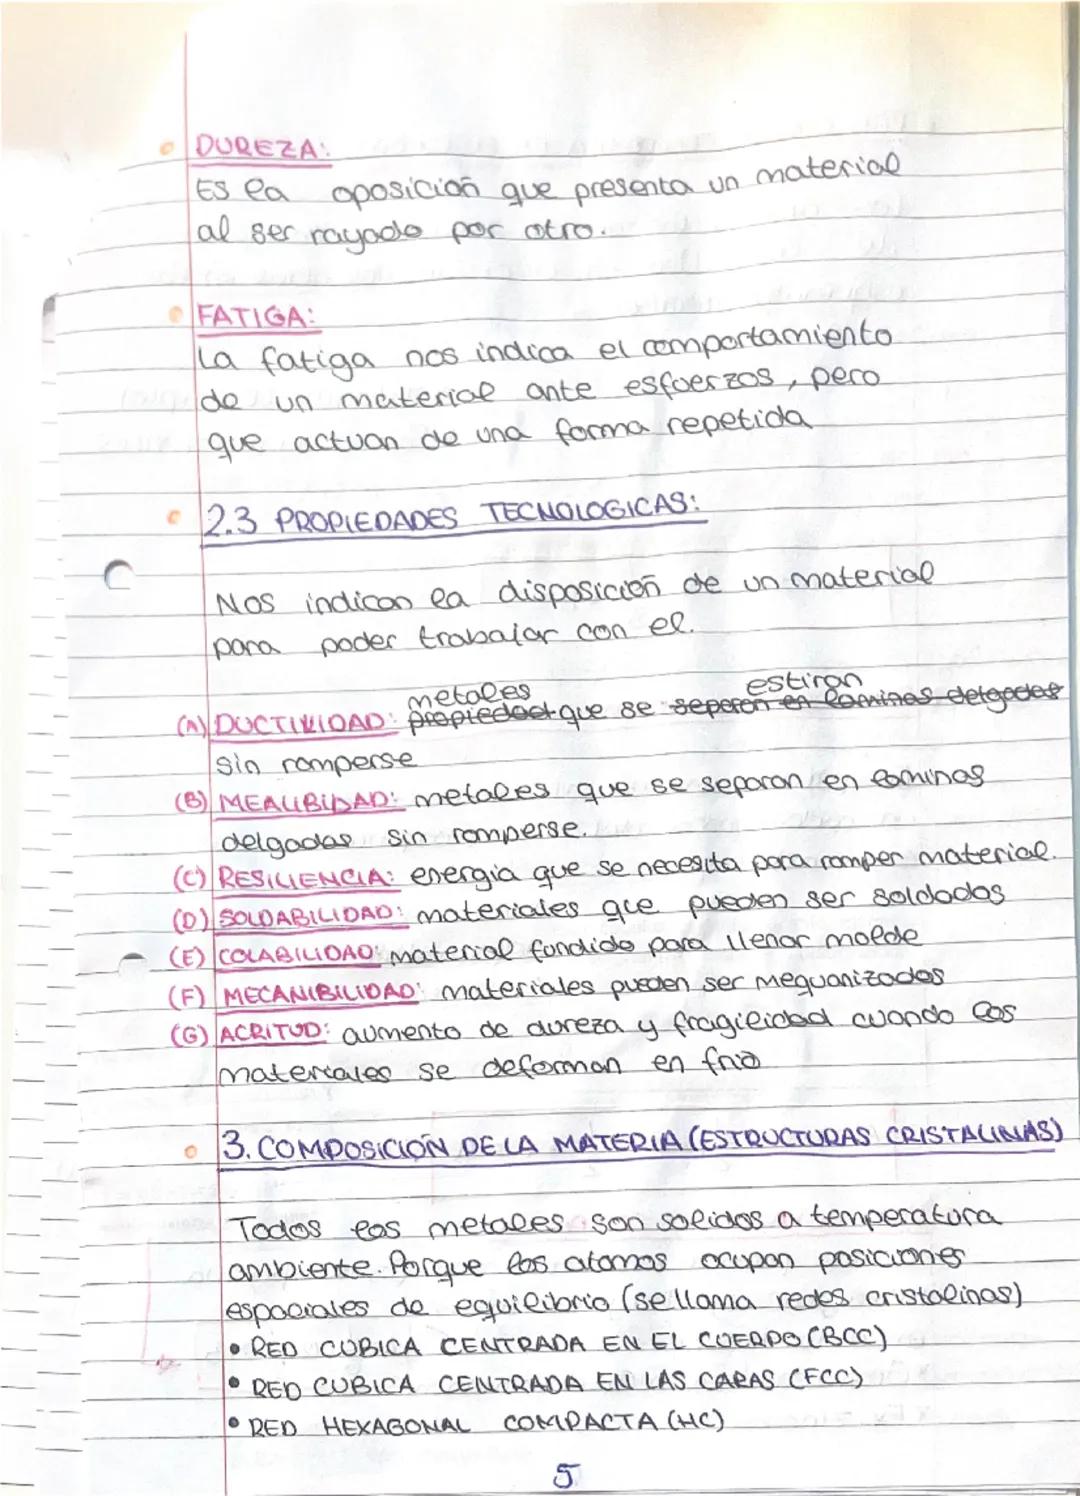 DUREZA:
Es la oposición que presenta un material
al ser rayado por otro.
FATIGA:
La fatiga nos indica el comportamiento
de un material ante esfuerzos, pero
que actuan de una forma repetida
2.3 PROPIEDADES TECNOLOGICAS:
Nos indican la disposición de un material
para poder trabajar con el.
metales estiran
(A) DUCTILIDAD: propiedad que se seperen en laminas delgadas
sin romperse
(B) MEALIBIDAD: metales que se separan en laminas
delgadas sin romperse.
(C) RESILIENCIA: energia que se necesita para romper material.
(D) SOLDABILIDAD: materiales que pueden ser soldados
(E) COLABILIDAD: material fundido para llenar molde
(F) MECANIBILIDAD: materiales pueden ser mequanizados
(G) ACRITUD: aumento de dureza y fragilidad cuando los
materiales se deforman en frio
3. COMPOSICIÓN DE LA MATERIA (ESTRUCTURAS CRISTALINAS)
Todos los metales son solidos a temperatura
ambiente. Porque los atomos ocupan posiciones
espaciales de equilibrio (se llama redes cristalinas)
• RED CUBICA CENTRADA EN EL CUERPO (BCC)
• RED CUBICA CENTRADA EN LAS CARAS (FCC)
• RED HEXAGONAL COMPACTA (HC)
5